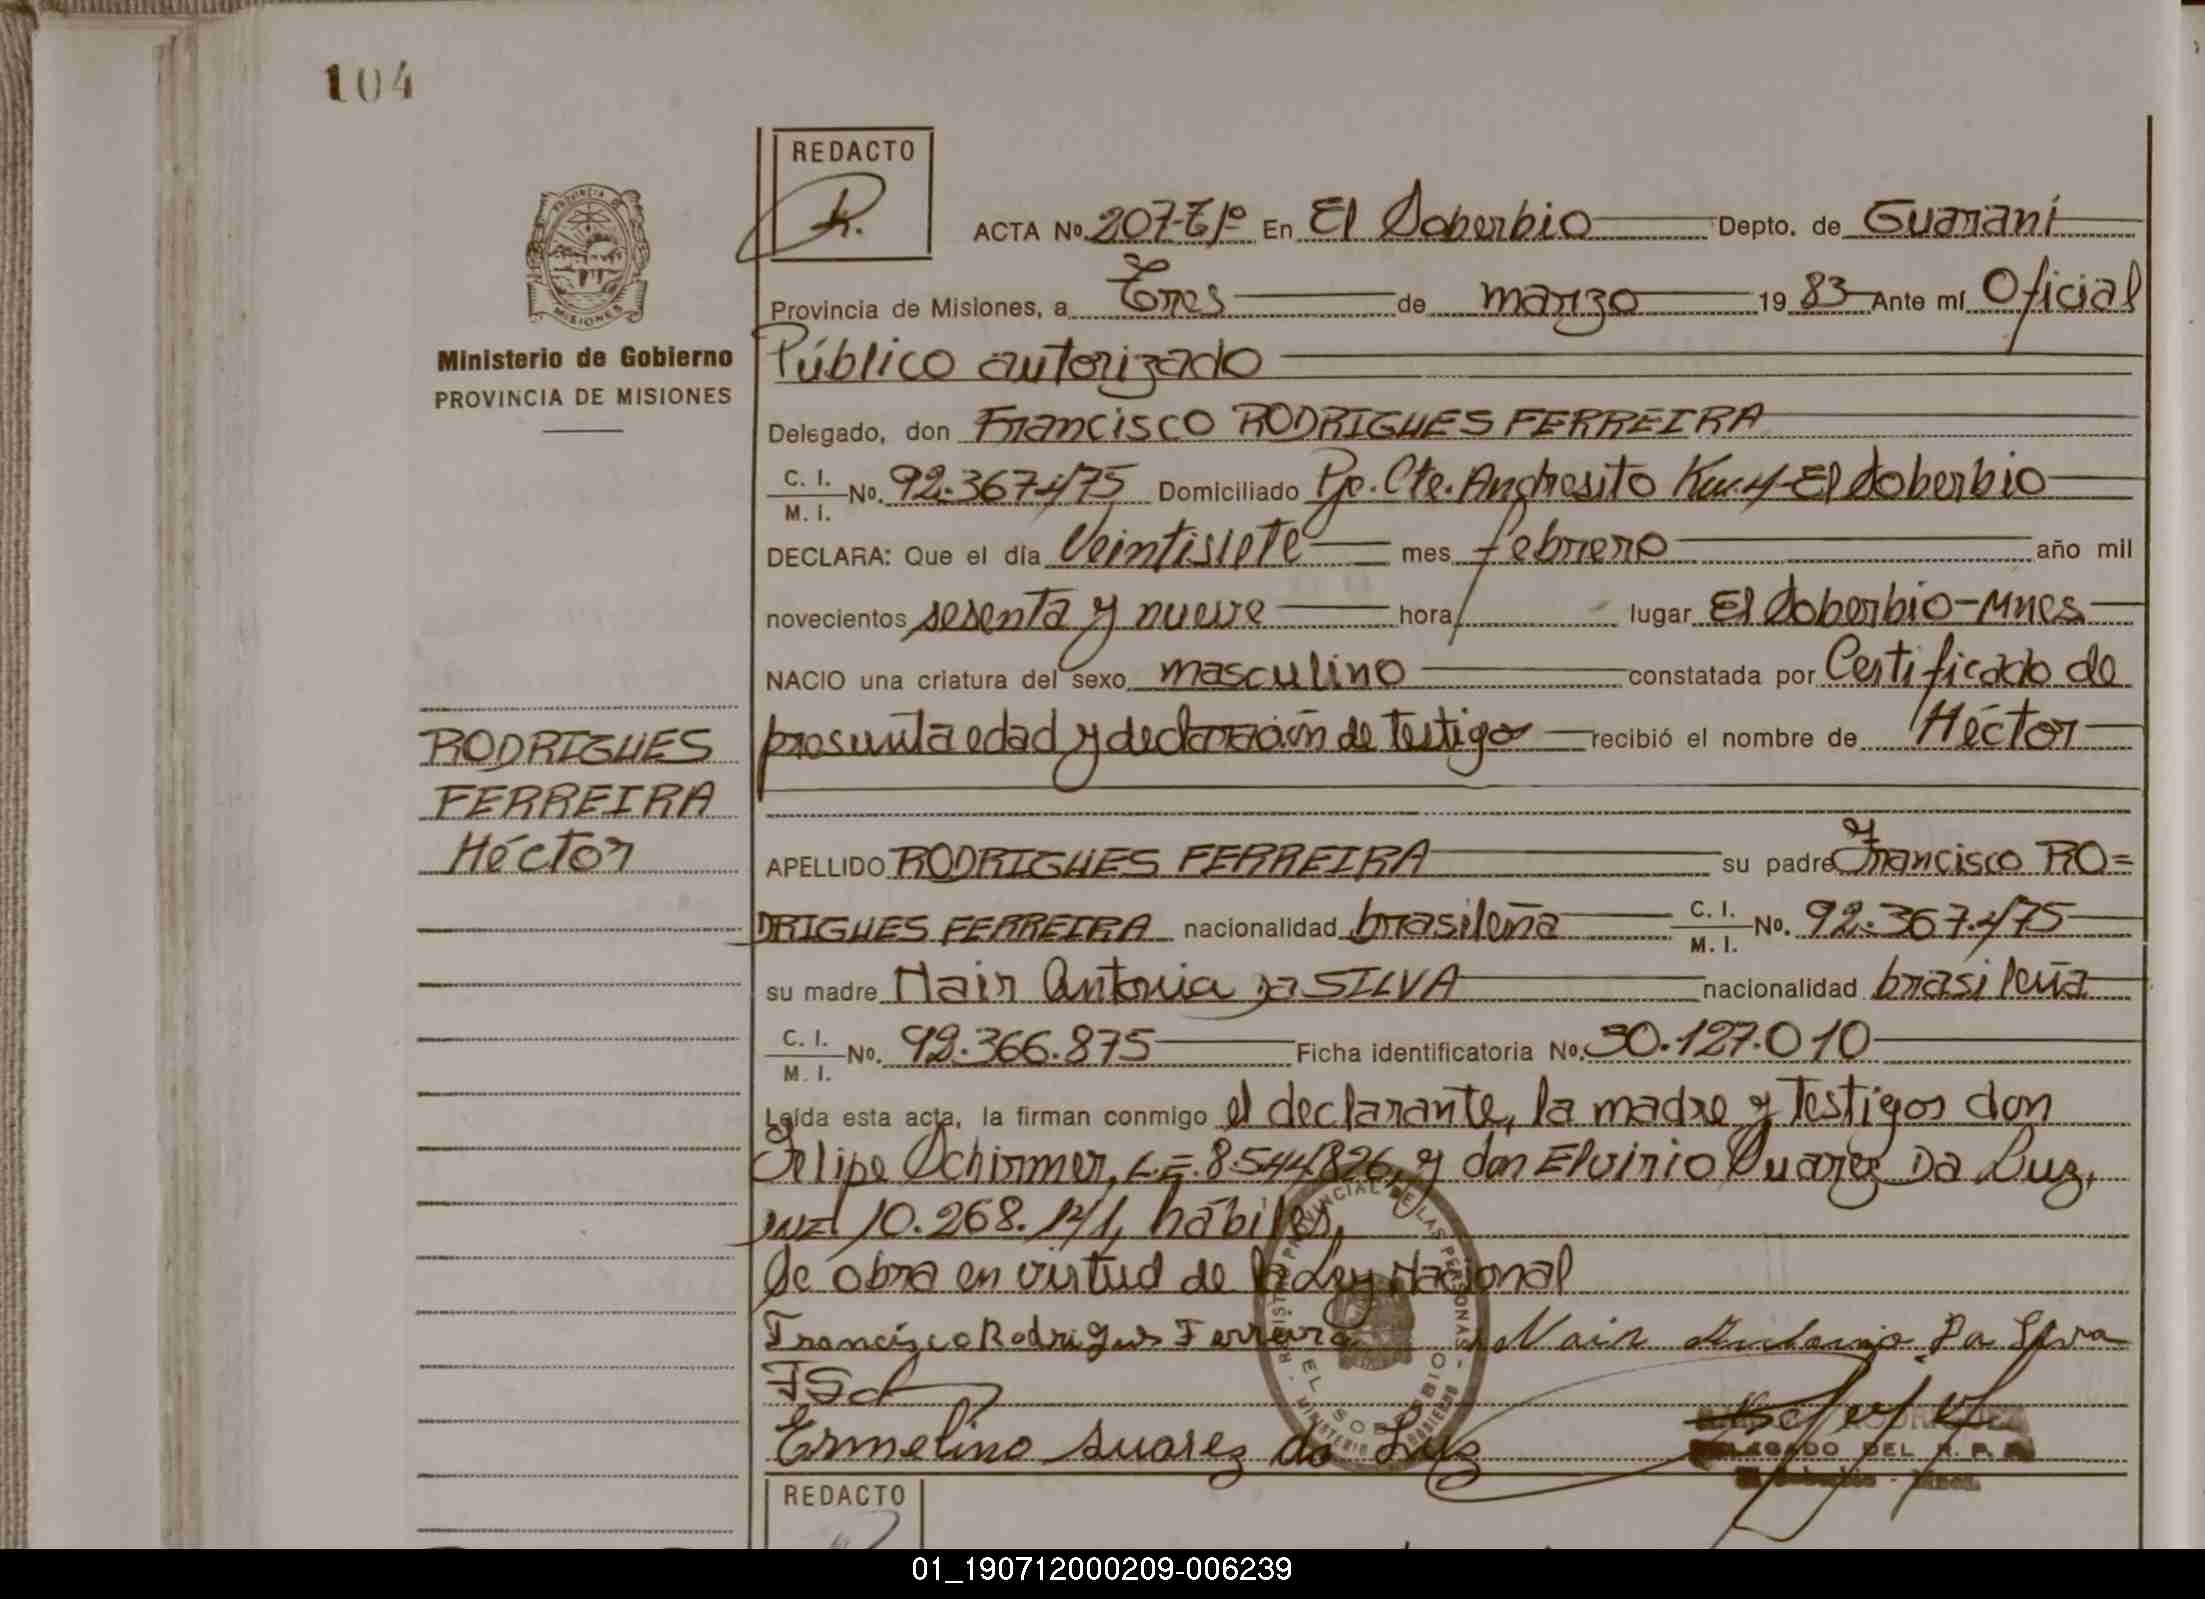 104
REDACTO
ACTA Nº 207-Tº1º En El Soberbio Depto. de Guaraní
Provincia de Misiones, a Tres de marzo 1983 Ante mí Oficial
Ministerio de Gobierno
PROVINCIA DE MISIONES
Público autorizado
Delegado, don Francisco RODRIGUES FERREIRA
C. I. M. I. No. 92.367.475 Domiciliado Pje. Cte. Andresito Km.4-El Soberbio
DECLARA: Que el día Veintisiete mes febrero año mil
novecientos sesenta y nueve hora lugar El Soberbio-Mnes
NACIO una criatura del sexo masculino constatada por Certificado de
presunta edad y declaración de testigos recibió el nombre de Héctor
RODRIGUES
FERREIRA
Héctor
APELLIDO RODRIGUES FERREIRA su padre Francisco RO=
DRIGUES FERREIRA nacionalidad brasileña C. I. M. I. No. 92.367.475
su madre Nair Antonia DA SILVA nacionalidad brasileña
C. I. M. I. No. 92.366.875 Ficha identificatoria No. 30.127.010
Leída esta acta, la firman conmigo el declarante, la madre y testigos don
Felipe Schirmer, L.E. 8.544.826, y don Elvirio Suarez Da Luz,
DNI 10.268.141, hábiles,
Se obra en virtud de la Ley Nacional
Francisco Rodrigues Ferreira Nair Antonia Da Silva
Ermelino Suarez da Luz
REGISTRO PROVINCIAL DE LAS PERSONAS
EL SOBERBIO
MINISTERIO GOBIERNO
DELEGADO DEL R. P. P.
REDACTO
01_190712000209-006239